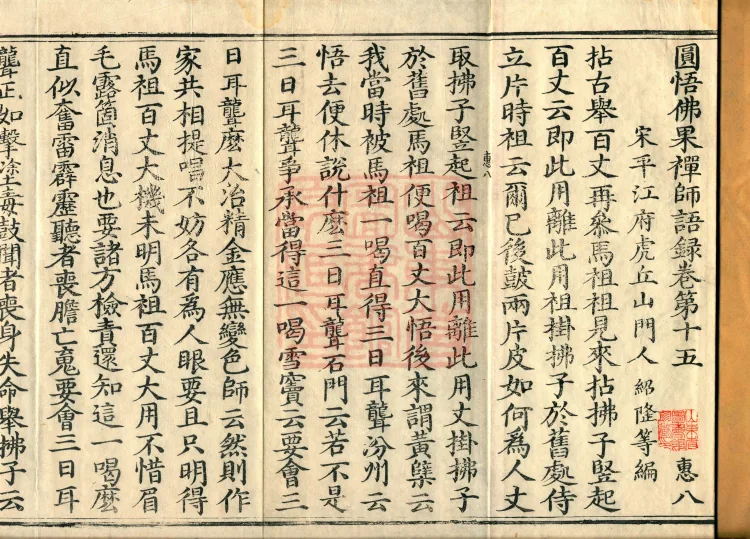 圓悟佛果禪師語録卷第十五 惠八
宋平江府虎丘山門人 紹隆等編
拈古舉百丈再叅馬祖祖見來拈拂子竪起
百丈云即此用離此用祖掛拂子於舊處侍
立片時祖云爾已後鼓兩片皮如何為人丈
取拂子竪起祖云即此用離此用丈掛拂子
惠八
於舊處馬祖便喝百丈大悟後來謂黃蘗云
我當時被馬祖一喝直得三日耳聾汾州云
悟去便休說什麽三日耳聾石門云若不是
三日耳聾爭承當得這一喝雪竇云要會三
日耳聾麽大冶精金應無變色師云然則作
家共相提唱不妨各有為人眼要且只明得
馬祖百丈大機未明馬祖百丈大用不惜眉
毛露箇消息也要諸方檢責還知這一喝麽
直似奮雷霹靂聽者喪膽亡䰟要會三日耳
聾正如擊塗毒鼓聞者喪身失命舉拂子云